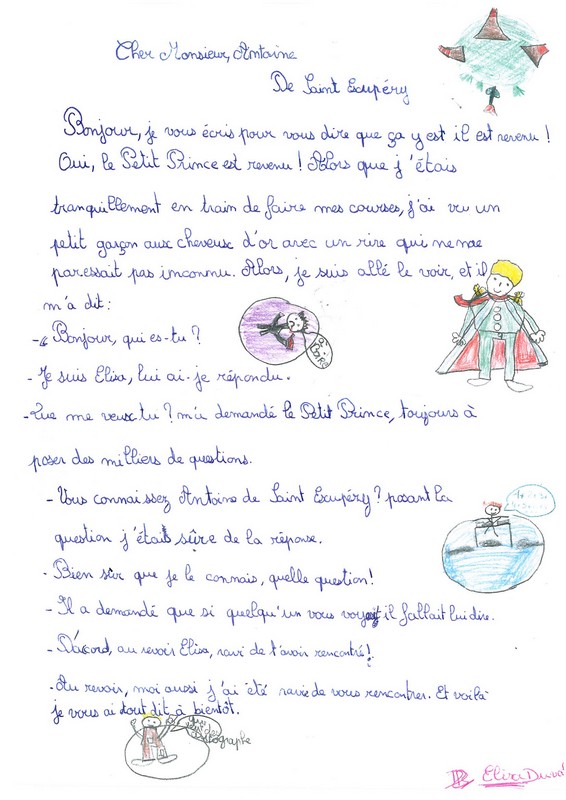 Cher Monsieur, Antoine
De Saint Exupéry
Bonjour, je vous écris pour vous dire que ça y est il est revenu !
Oui, le Petit Prince est revenu ! Alors que j'étais
tranquillement en train de faire mes courses, j'ai vu un
petit garçon aux cheveux d'or avec un rire qui ne me
paressait pas inconnu. Alors, je suis allé le voir, et il
m'a dit :
- Bonjour, qui es-tu ?
- Je suis Elisa, lui ai-je répondu.
- Que me veux-tu ? m'a demandé le Petit Prince, toujours à
poser des milliers de questions.
- Vous connaissez Antoine de Saint Exupéry ? posant la
question j'étais sûre de la réponse.
- Bien sûr que je le connais, quelle question !
- Il a demandé que si quelqu'un vous voyait il fallait lui dire.
- D'accord, au revoir Elisa, ravi de t'avoir rencontré !
- Au revoir, moi aussi j'ai été ravie de vous rencontrer. Et voilà
je vous ai tout dit, à bientôt.
Elisa Duval